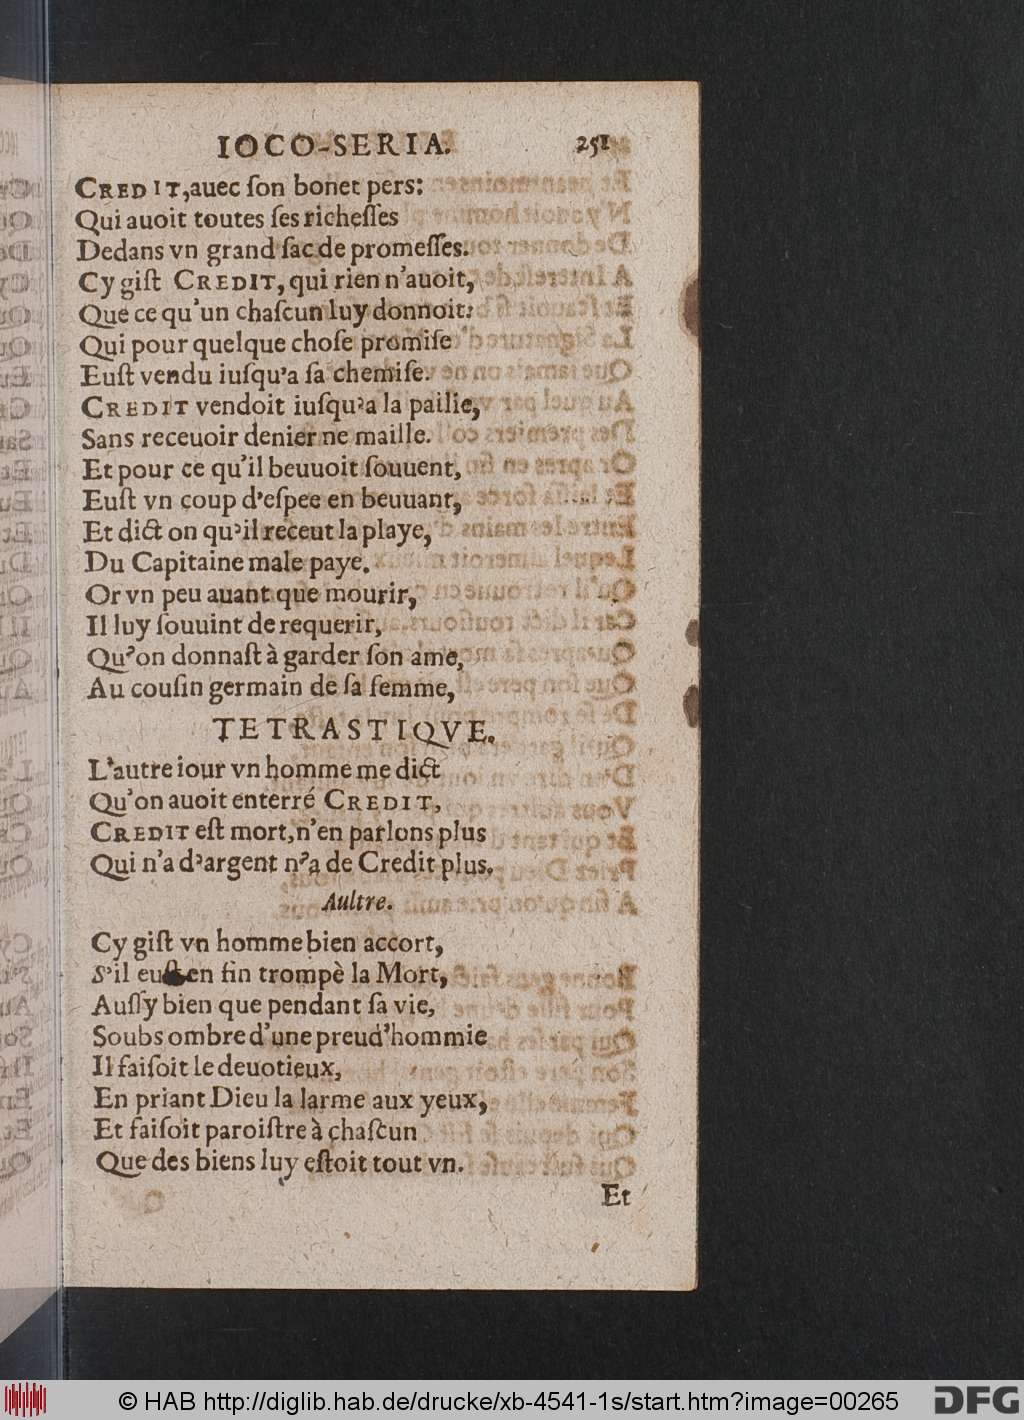 IOCO-SERIA. 251
CREDIT,auec ſon bonet pers:
Qui auoit toutes ſes richeſſes
Dedans vn grand ſac de promeſſes.
Cy giſt CREDIT, qui rien n'auoit,
Que ce qu'un chaſcun luy donnoit:
Qui pour quelque choſe promiſe
Euſt vendu iuſqu'a ſa chemiſe.
CREDIT vendoit iuſqu'a la pailie,
Sans receuoir denier ne maille.
Et pour ce qu'il beuuoit ſouuent,
Euſt vn coup d'eſpee en beuuant,
Et dict on qu'il receut la playe,
Du Capitaine male paye.
Or vn peu auant que mourir,
Il luy ſouuint de requerir,
Qu'on donnaſt à garder ſon ame,
Au couſin germain de ſa femme,
TETRASTIQVE.
L'autre iour vn homme me dict
Qu'on auoit enterré CREDIT,
CREDIT eſt mort, n'en parlons plus
Qui n'a d'argent n'a de Credit plus.
Aultre.
Cy giſt vn homme bien accort,
S'il euſt en fin trompè la Mort,
Auſſy bien que pendant ſa vie,
Soubs ombre d'une preud'hommie
Il faiſoit le deuotieux,
En priant Dieu la larme aux yeux,
Et faiſoit paroiſtre à chaſcun
Que des biens luy eſtoit tout vn.
Et
© HAB http://diglib.hab.de/drucke/xb-4541-1s/start.htm?image=00265
DFG